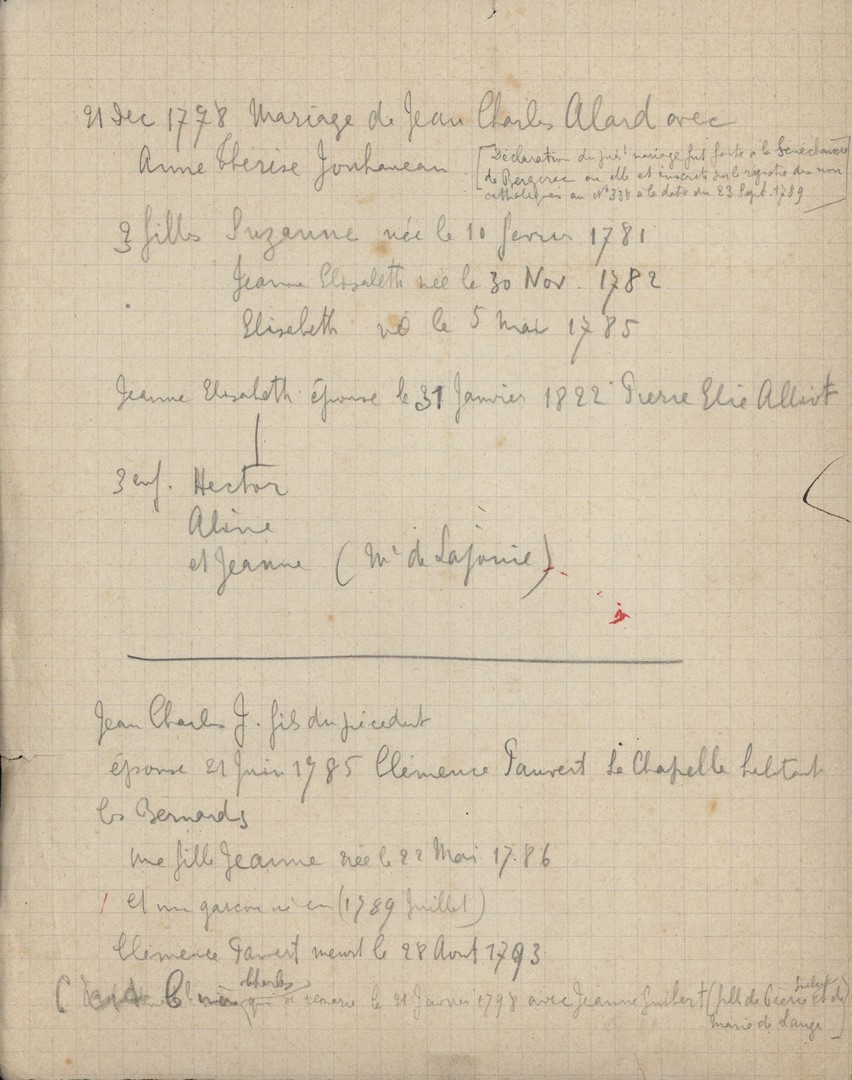 21 Dec 1778 Mariage de Jean Charles Alard avec
Anne Thérèse Jouhaneau
[Déclaration du prést mariage fut faite à la Sénéchaussée
de Bergerac où elle est inscrite sur le registre des non
catholiques au N° 338 à la date du 23 Sept. 1789
3 filles Suzanne née le 10 fevrier 1781
Jeanne Elisabeth née le 30 Nov. 1782
Elisabeth né le 5 Mai 1785
Jeanne Elisabeth épouse le 31 Janvier 1822 Pierre Elie Alliot
3 enf. Hector
Aline
et Jeanne (Me de Lajonie)
Jean Charles J. fils du précédent
épouse 21 Juin 1785 Clémence Pauvert La Chapelle habitant
les Bernards
une fille Jeanne née le 22 Mai 1786
et un garçon né en (1789 Juillet)
Clémence Pauvert meurt le 28 Aout 1793
Charles
se remarie le 21 Janvier 1798 avec Jeanne Guibert (fille de Pierre Guibert et de
Marie de Lange